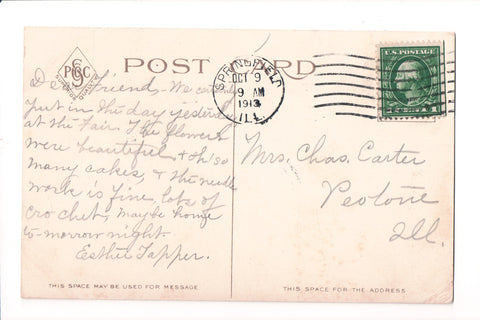 POST CARD
SPRINGFIELD
OCT 9
9 AM
1913
ILL.
U.S. POSTAGE
Dear Friend - We certainly
put in the day yesterday
at the Fair. The flowers
were beautiful, & Oh! so
many cakes, & the needle
work is fine, lots of
crochet, maybe home
to-morrow night.
Esther Tapper.
Mrs. Chas. Carter
Peotone
Ill.
THIS SPACE MAY BE USED FOR MESSAGE
THIS SPACE FOR THE ADDRESS